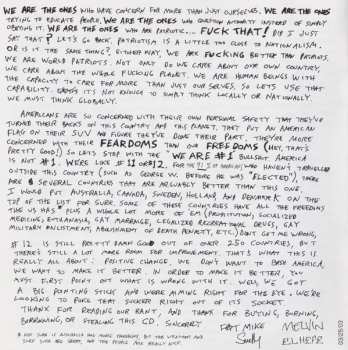 WE ARE THE ONES WHO HAVE CONCERN FOR MORE THAN JUST OURSELVES. WE ARE THE ONES
TRYING TO EDUCATE PEOPLE. WE ARE THE ONES WHO QUESTION AUTHORITY INSTEAD OF SIMPLY
OBEYING IT. WE ARE THE ONES WHO ARE PATRIOTIC... FUCK THAT! DID I JUST
SAY THAT? LET'S GO BACK. PATRIOTISM IS A LITTLE TOO CLOSE TO NATIONALISM.
OR IS IT THE SAME THING? EITHER WAY, WE ARE FUCKING BETTER THAN PATRIOTS.
WE ARE WORLD PATRIOTS NOT ONLY DO WE CARE ABOUT OUR OWN COUNTRY,
WE CARE ABOUT THE WHOLE FUCKING PLANET. WE ARE HUMAN BEINGS WITH
THE CAPACITY TO CARE FOR MORE THAN JUST OUR SELVES, SO LETS USE THAT
CAPABILITY. IT'S NOT ENOUGH TO SIMPLY THINK LOCALLY OR NATIONALLY
WE MUST THINK GLOBALLY.
AMERICANS ARE SO CONCERNED WITH THEIR OWN PERSONAL SAFETY THAT THEY'VE
TURNED THEIR BACKS ON THIS COUNTRY AND THIS PLANET. THEY PUT AN AMERICAN
FLAG ON THEIR SUV AND FIGURE THEY'VE DONE THEIR PART. THEY'RE MORE
CONCERNED WITH THEIR FEARDOMS THAN OUR FREEDOMS (HEY, THAT'S
PRETTY GOOD!) SO LETS STOP WITH THE "WE ARE #1" BULLSHIT AMERICA
IS NOT #1. WERE LIKE #11 OR #12. FOR THE OF AMERICANS WHO HAVEN'T TRAVELLED
OUTSIDE THIS COUNTRY (SUCH AS GEORGE W. BEFORE HE WAS "ELECTED"), THERE
ARE SEVERAL COUNTRIES THAT ARE ARGUABLY BETTER THAN THIS ONE.
I WOULD PUT AUSTRALIA, CANADA, SWEDEN, HOLLAND, AND DENMARK ON THE
TOP OF THE LIST FOR SURE. SOME OF THESE COUNTRIES HAVE ALL THE FREEDOMS
THE US HAS PLUS A WHOLE LOT MORE OF EM (PROSTITUTION, SOCIALIZED
MEDICINE, EUTHANASIA, GAY MARRIAGE, LEGALIZED RECREATIONAL DRUGS, GAY
MILITARY ENLISTMENT, ABOLISHMENT OF DEATH PENALTY, ETC) DON'T GET ME WRONG,
#12 IS STILL PRETTY DAMN GOOD OUT OF OVER 250 COUNTRIES, BUT
THERE'S STILL A LOT MORE ROOM FOR IMPROVEMENT. THAT'S WHAT THIS IS
REALLY ALL ABOUT: POSITIVE CHANGE. WE DON'T WANT TO BASH AMERICA
WE WANT TO MAKE IT BETTER. IN ORDER TO MAKE IT BETTER, YOU
MUST FIRST POINT OUT WHAT IS WRONG WITH IT. WELL, WE GOT
A BIG POINTING STICK AND WERE AIMING RIGHT FOR THE EYE. WE'RE
LOOKING TO POKE THAT SUCKER RIGHT OUT OF ITS SOCKET.
THANK FOR READING OUR RANT, AND THANK FOR BUYING, BURNING,
BORROWING, OR STEALING THIS CD. SINCERELY FAT MIKE MELVIN
EL HEFE
03/25/03